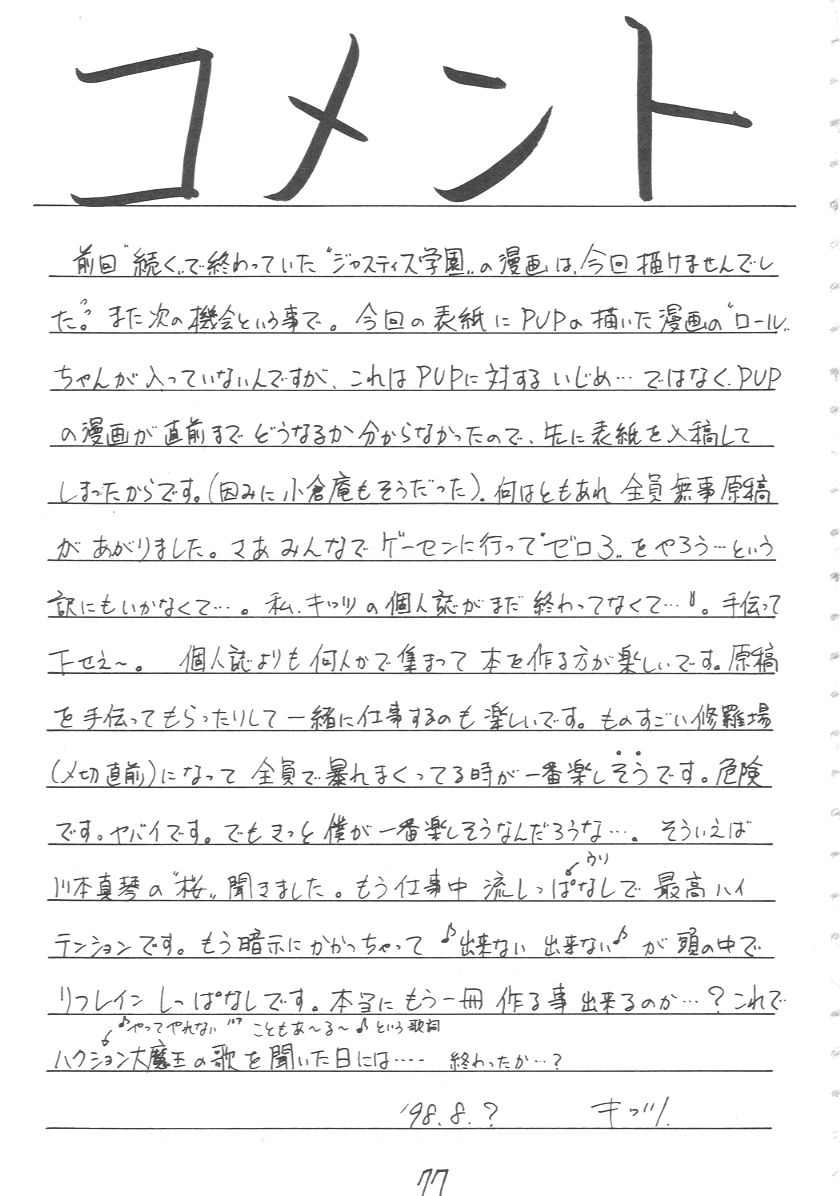 コメント
前回〝続く〟で終わっていた〝ジャスティス学園〟の漫画は、今回描けませんでし
た。また次の機会という事で。今回の表紙にPUPの描いた漫画の〝ロール〟
ちゃんが入っていないんですが、これはPUPに対するいじめ…ではなく、PUP
の漫画が直前までどうなるか分からなかったので、先に表紙を入稿して
しまったからです。(因みに小倉庵もそうだった)。何はともあれ全員無事原稿
があがりました。さあみんなでゲーセンに行って〝ゼロ3〟をやろう…という
訳にもいかなくて…。私、キッツの個人誌がまだ終わってなくて…。手伝って
下せえ〜。 個人誌よりも何人かで集まって本を作る方が楽しいです。原稿
を手伝ってもらったりして一緒に仕事するのも楽しいです。ものすごい修羅場
(〆切直前)になって全員で暴れまくってる時が一番楽しそうです。危険
です。ヤバイです。でもきっと僕が一番楽しそうなんだろうな…。そういえば
川本真琴の〝桜〟聞きました。もう仕事中流しっぱなしで最高ハイ
テンションです。もう暗示にかかっちゃって♪出来ない出来ない♪が頭の中で
リフレインしっぱなしです。本当にもう一冊作る事出来るのか…?これで
♪やってやれない こともあ〜る〜♪という歌詞
ハクション大魔王の歌を聞いた日には…… 終わったか…?
'98.8.? キッツ
77